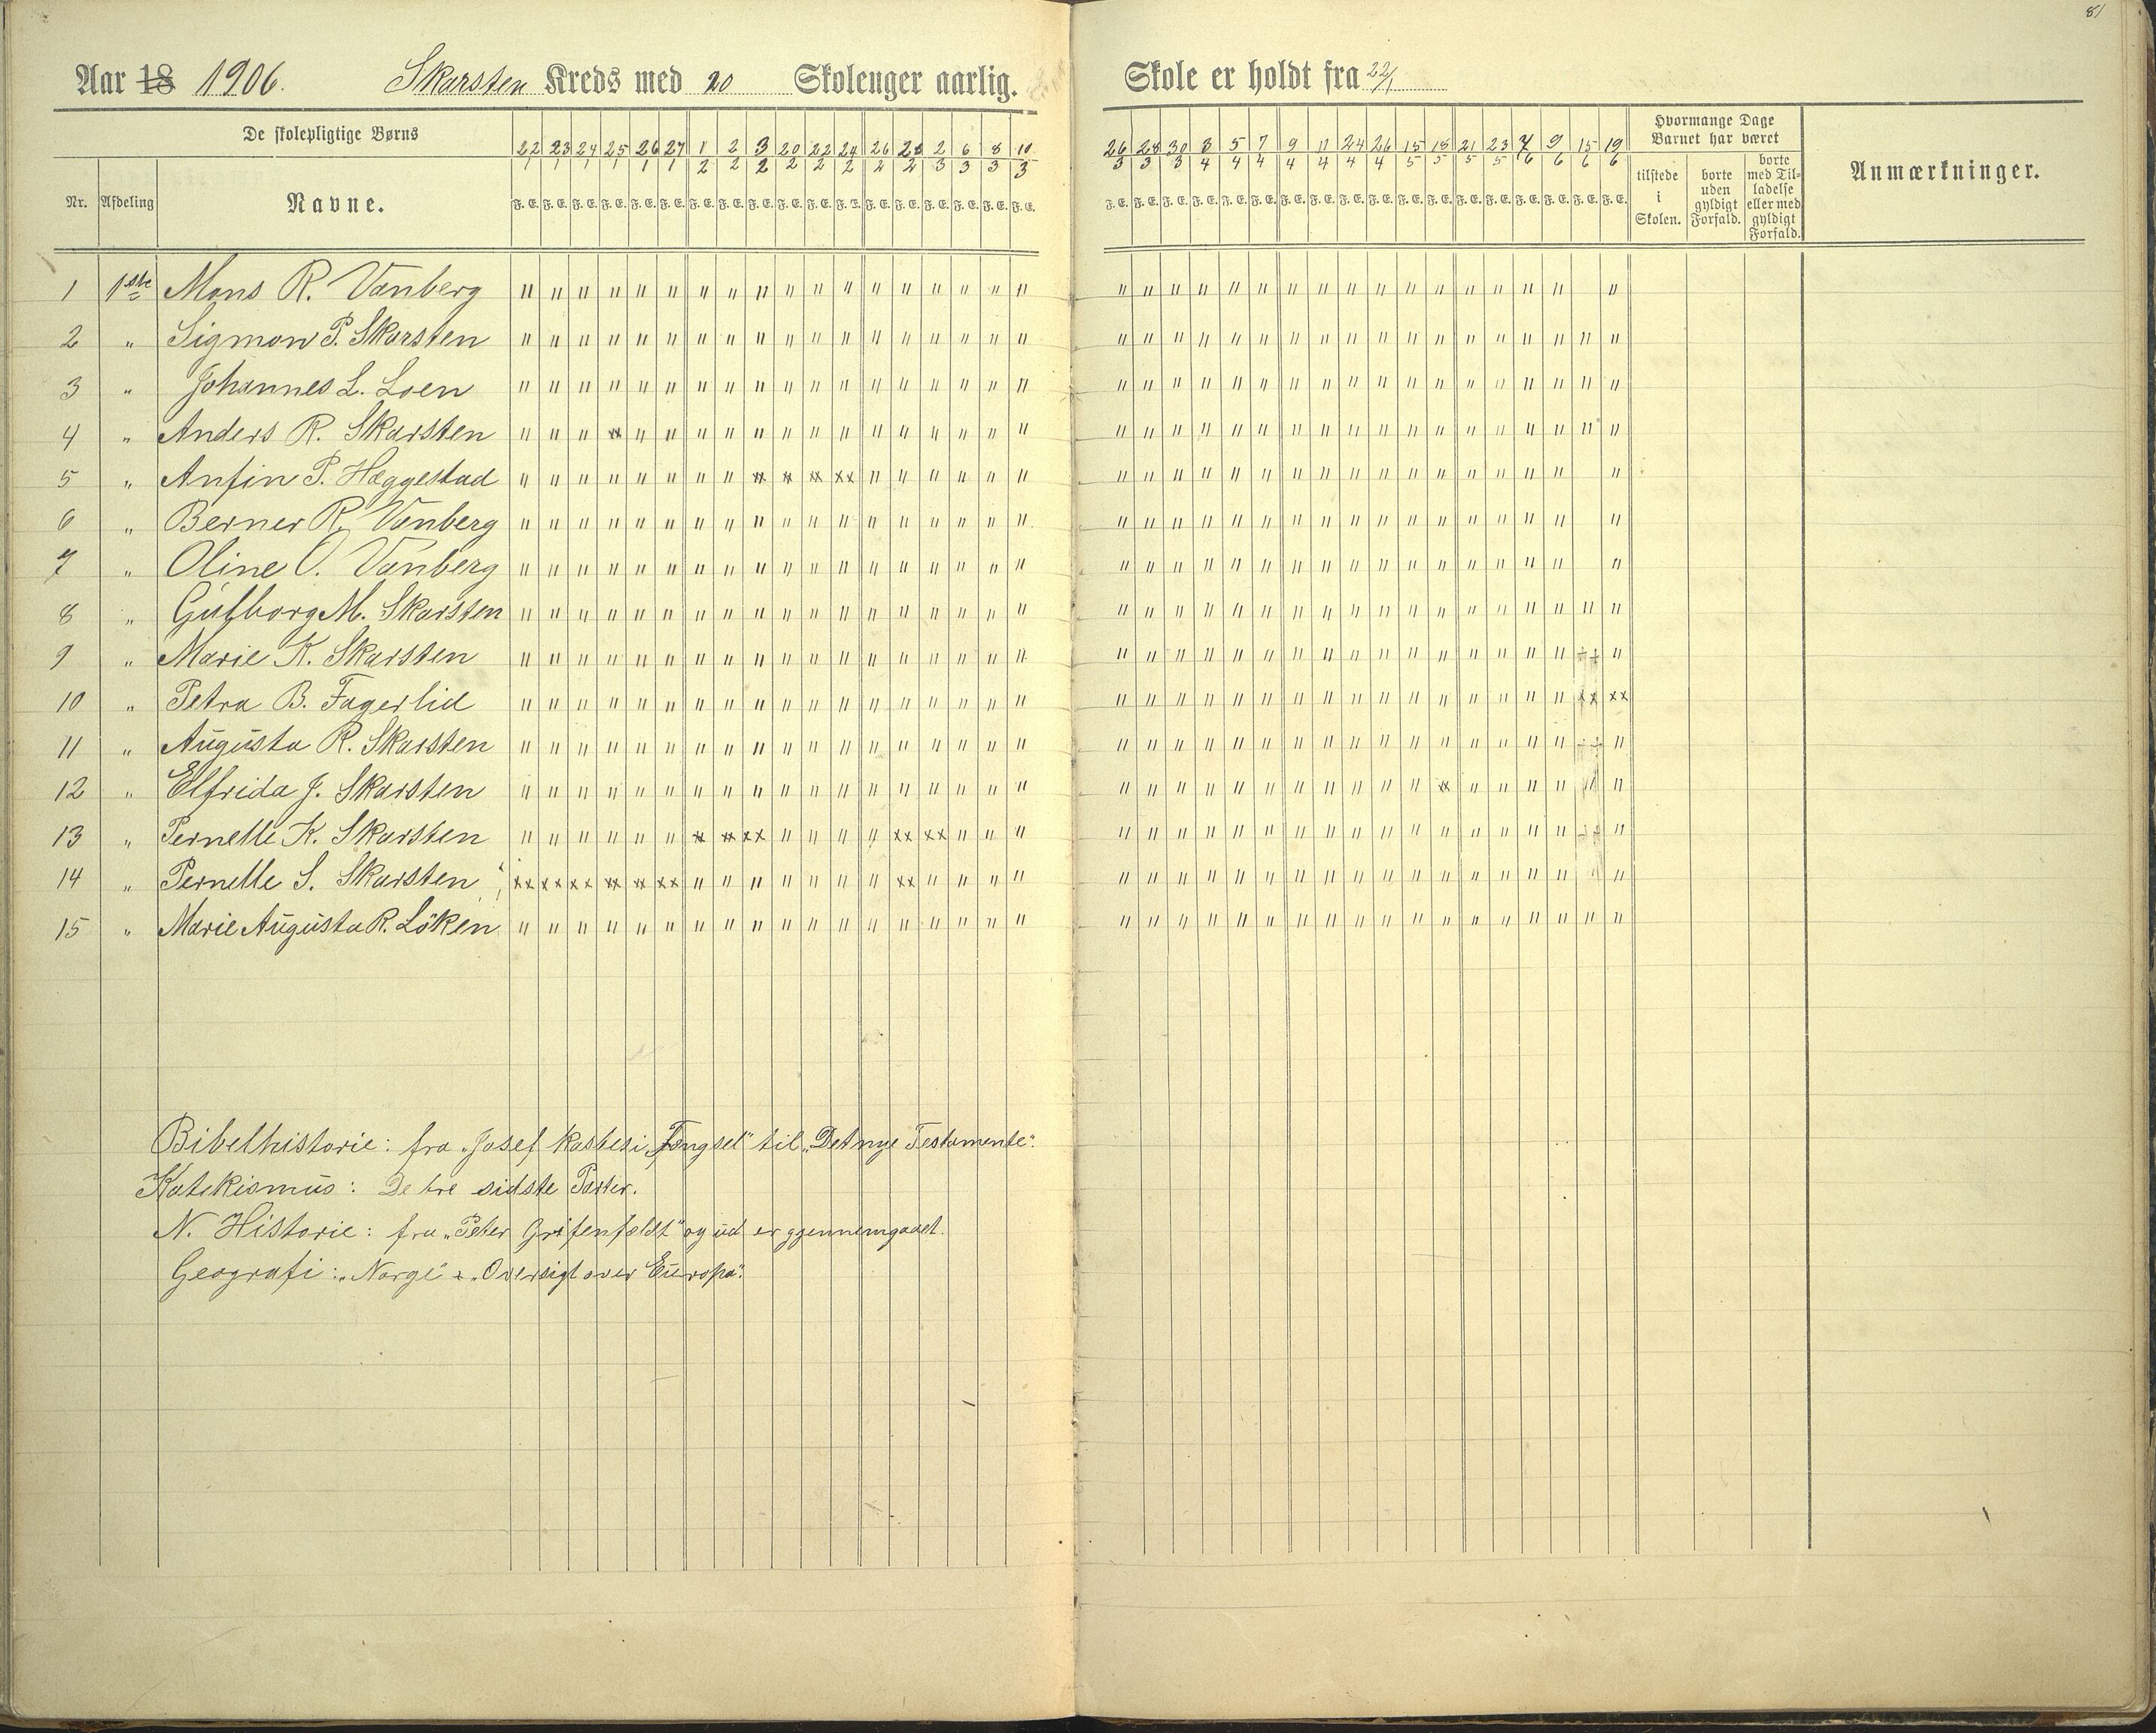 81
Aar 18 1906. Skarsten Kreds med 20 Skolenger aarlig. Skole er holdt fra 22/1
De skolepligtige Børns
Nr. Afdeling Navne.
22/1 23/1 24/1 25/1 26/1 27/1 1/2 2/2 3/2 20/2 22/2 24/2 26/2 28/2 2/3 6/3 8/3 10/3
F. E. F. E. F. E. F. E. F. E. F. E. F. E. F. E. F. E. F. E. F. E. F. E. F. E. F. E. F. E. F. E. F. E. F. E.
26/3 28/3 30/3 3/4 5/4 7/4 9/4 11/4 24/4 26/4 15/5 18/5 21/5 23/5 7/6 9/6 15/6 19/6
F. E. F. E. F. E. F. E. F. E. F. E. F. E. F. E. F. E. F. E. F. E. F. E. F. E. F. E. F. E. F. E. F. E. F. E.
Hvormange Dage
Barnet har været
tilstede
i
Skolen.
borte
uden
gyldigt
Forfald.
borte
med Til-
ladelse
eller med
gyldigt
Forfald.
Anmærkninger.
1 1ste Mons R. Vanberg
2 " Sigmon P. Skarsten
3 " Johannes L. Loen
4 " Anders R. Skarsten
5 " Anfin P. Hæggestad
6 " Berner R. Vanberg
7 " Oline O. Vanberg
8 " Gulborg M. Skarsten
9 " Marie K. Skarsten
10 " Petra B. Fagerlid
11 " Augusta R. Skarsten
12 " Elfrida J. Skarsten
13 " Pernelle K. Skarsten
14 " Pernelle S. Skarsten
15 " Marie Augusta R. Löken
Bibelhistorie: fra „Josef kastes i Fængsel" til „Det nye Testamente".
Katekismus: De tre sidste Parter.
N. Historie: fra „Peter Grifenfeldt" og ud er gjennemgaaet.
Geografi: „Norge" & „Oversigt over Europa".